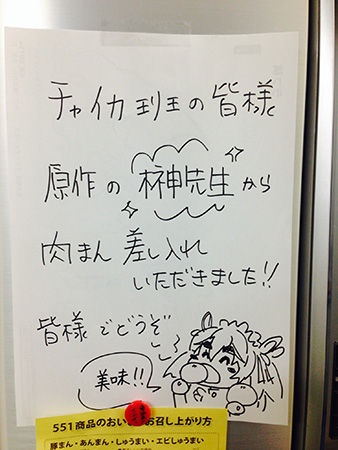 チャイカ班の皆様
原作の榊先生から
肉まん差し入れ
いただきました!!
皆様でどうぞ
美味!!
551商品のおいしいお召し上がり方
豚まん・あんまん・しゅうまい・エビしゅうまい